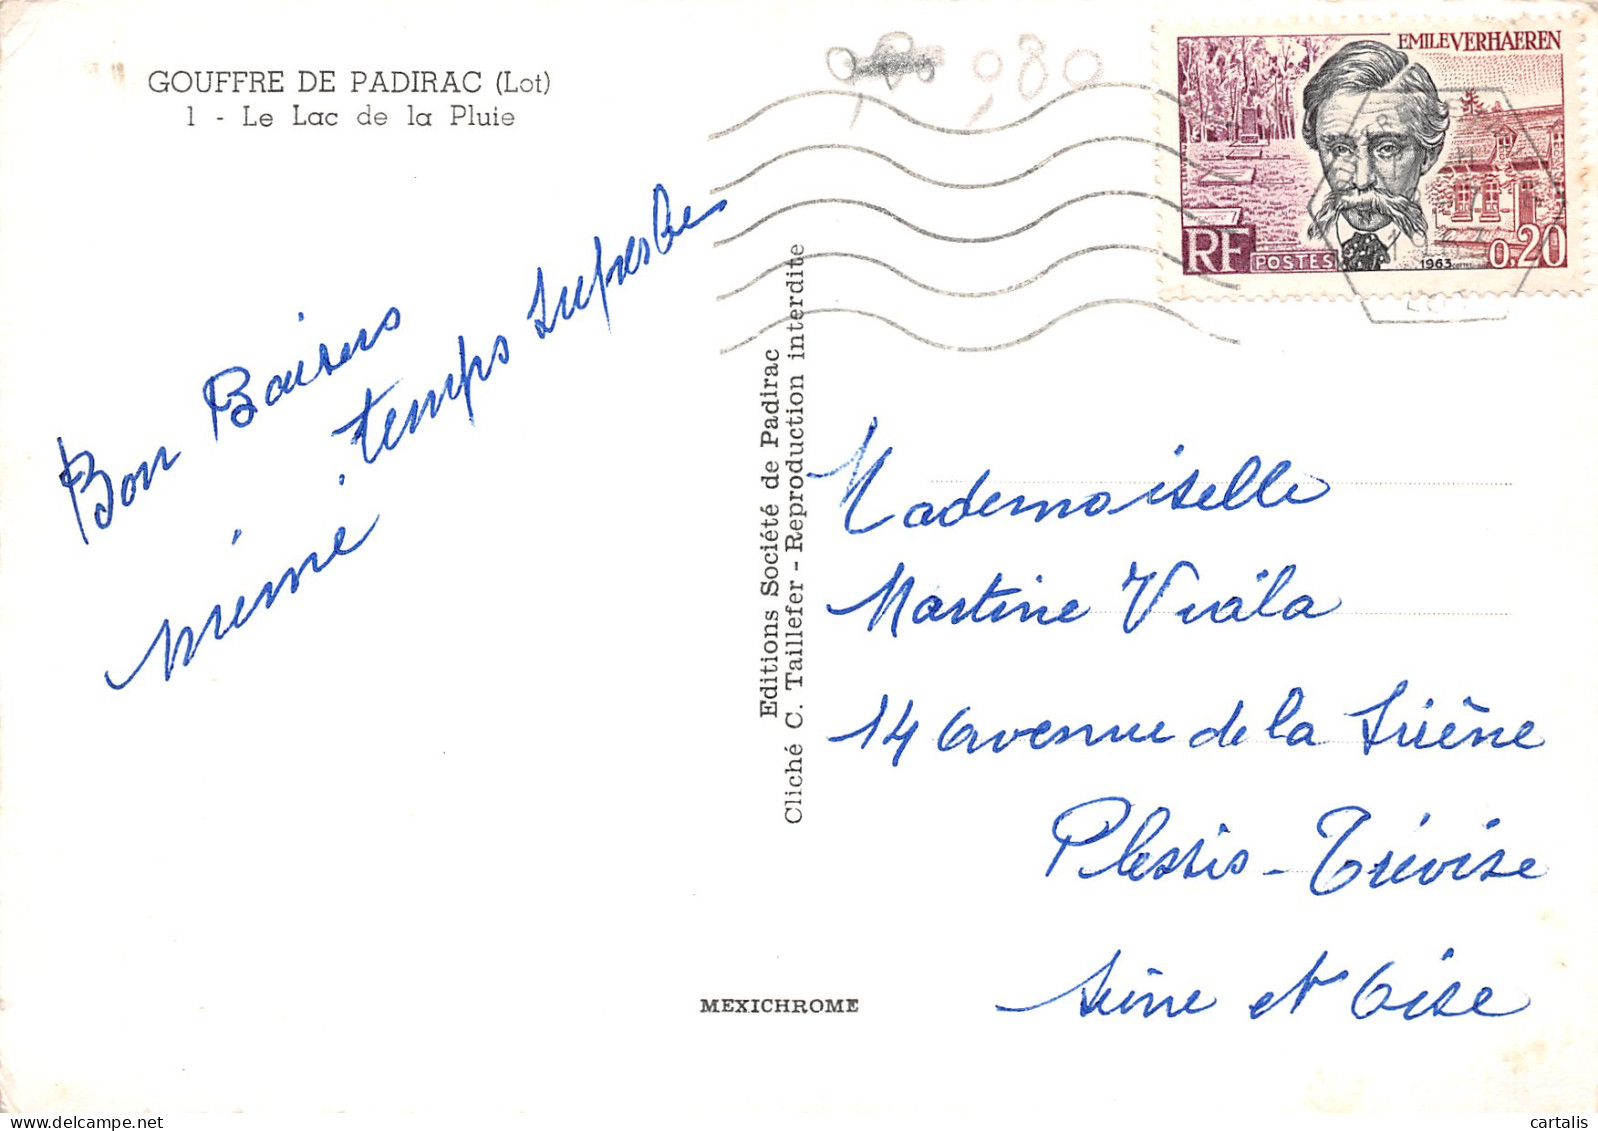 GOUFFRE DE PADIRAC (Lot)
1 - Le Lac de la Pluie
980
EMILE VERHAEREN
RF
POSTES
1963
0,20
LOT
Bon Baisers
mémé. temps superbe
Editions Société de Padirac
Cliché C. Taillefer - Reproduction interdite
Mademoiselle
Martine Viala
14 avenue de la Sirène
Plessis-Trévise
Seine et Oise
MEXICHROME
cartalis